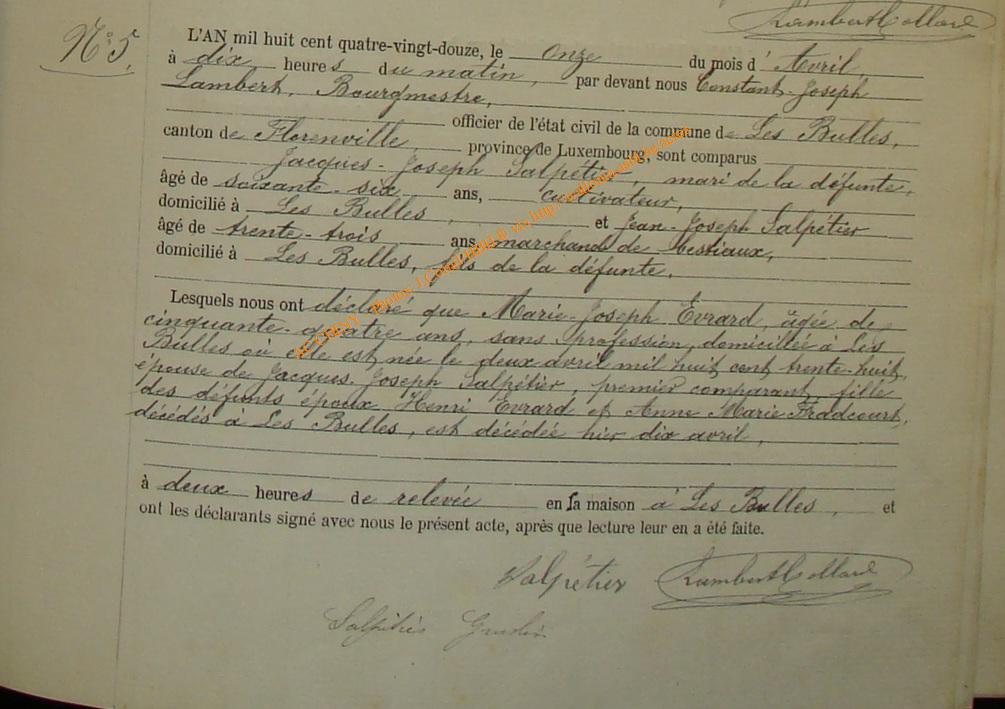 Lambert Collard
N° 5.
L'AN mil huit cent quatre-vingt-douze, le onze du mois d'Avril,
à dix heures du matin, par devant nous Constant-Joseph
Lambert, Bourgmestre,
officier de l'état civil de la commune de Les Bulles,
canton de Florenville, province de Luxembourg, sont comparus
Jacques-Joseph Salpétier, mari de la défunte,
âgé de soixante-six ans, cultivateur,
domicilié à Les Bulles, et Jean-Joseph Salpétier
âgé de trente-trois ans, marchand de bestiaux,
domicilié à Les Bulles, fils de la défunte.
Lesquels nous ont déclaré que Marie-Joseph Evrard, âgée de
cinquante-quatre ans, sans profession, domiciliée à Les
Bulles où elle est née le deux avril mil huit cent trente-huit,
épouse de Jacques Joseph Salpétier, premier comparant, fille
des défunts époux Henri Evrard et Anne Marie Fradcourt,
décédés à Les Bulles, est décédée hier dix avril,
à deux heures de relevée en sa maison à Les Bulles, et
ont les déclarants signé avec nous le présent acte, après que lecture leur en a été faite.
Salpétier Lambert Collard